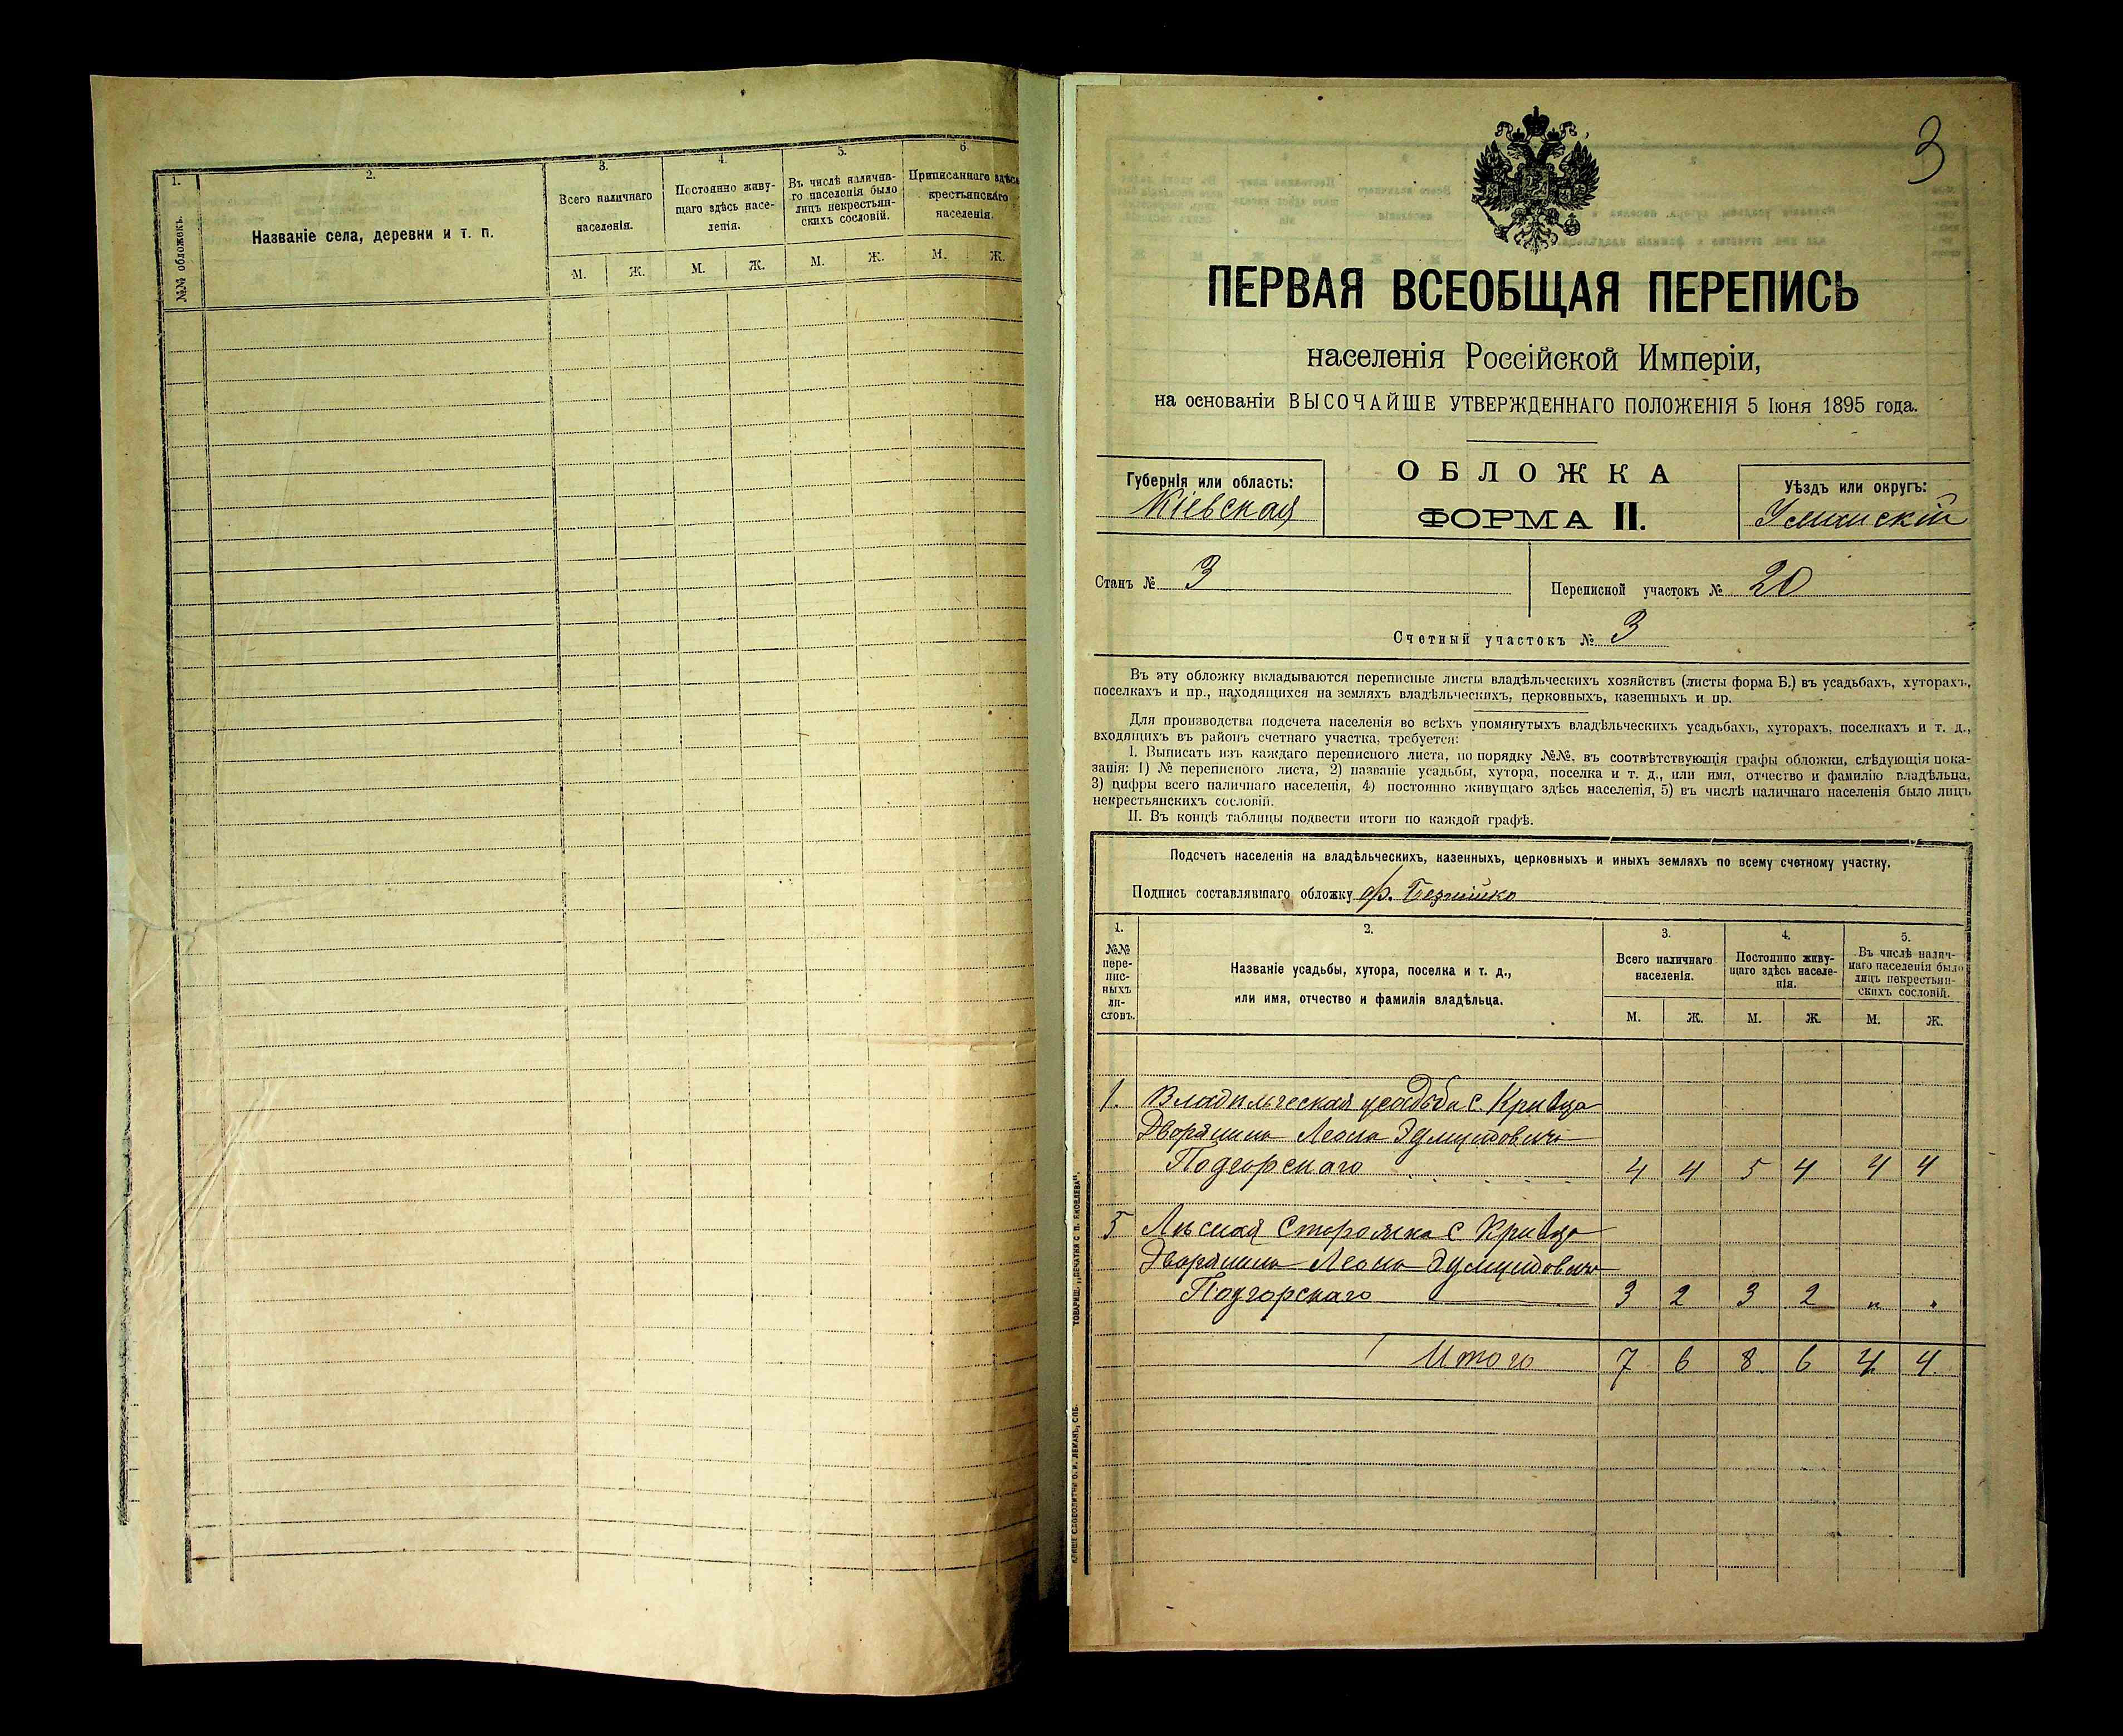 1.
2.
3.
4.
5.
6
№№ обложекъ.
Названіе села, деревни и т. п.
Всего наличнаго
населенія.
Постоянно живу-
щаго здѣсь насе-
ленія.
Въ числѣ налична-
го населенія было
лицъ некрестьян-
скихъ сословій.
Приписаннаго здѣсь
крестьянскаго
населенія.
М. Ж. М. Ж. М. Ж. М. Ж.
3
ПЕРВАЯ ВСЕОБЩАЯ ПЕРЕПИСЬ
населенія Россійской Имперіи,
на основаніи ВЫСОЧАЙШЕ УТВЕРЖДЕННАГО ПОЛОЖЕНІЯ 5 Іюня 1895 года.
Губернія или область:
Кіевская
ОБЛОЖКА
ФОРМА II.
Уѣздъ или округъ:
Уманскій
Станъ № 3
Переписной участокъ № 20
Счетный участокъ № 3
Въ эту обложку вкладываются переписные листы владѣльческихъ хозяйствъ (листы форма Б.) въ усадьбахъ, хуторахъ,
поселкахъ и пр., находящихся на земляхъ владѣльческихъ, церковныхъ, казенныхъ и пр.
Для производства подсчета населенія во всѣхъ упомянутыхъ владѣльческихъ усадьбахъ, хуторахъ, поселкахъ и т. д.,
входящихъ въ районъ счетнаго участка, требуется:
I. Выписать изъ каждаго переписного листа, по порядку №№, въ соотвѣтствующія графы обложки, слѣдующія пока-
занія: 1) № переписного листа, 2) названіе усадьбы, хутора, поселка и т. д., или имя, отчество и фамилію владѣльца,
3) цифры всего наличнаго населенія, 4) постоянно живущаго здѣсь населенія, 5) въ числѣ наличнаго населенія было лицъ
некрестьянскихъ сословій.
II. Въ концѣ таблицы подвести итоги по каждой графѣ.
Подсчетъ населенія на владѣльческихъ, казенныхъ, церковныхъ и иныхъ земляхъ по всему счетному участку.
Подпись составлявшаго обложку
1.
№№
пере-
пис-
ныхъ
ли-
стовъ.
2.
Названіе усадьбы, хутора, поселка и т. д.,
или имя, отчество и фамилія владѣльца.
3.
Всего наличнаго
населенія.
4.
Постоянно живу-
щаго здѣсь населе-
нія.
5.
Въ числѣ налич-
наго населенія было
лицъ некрестьян-
скихъ сословій.
М. Ж. М. Ж. М. Ж.
1. Владѣльческая усадьба с. Кривца
Дворянина Леона Эдмундовича
Подгорскаго 4 4 5 4 4 4
5 Лѣсная Сторожка с Кривца
Дворянина Леона Эдмундовича
Подгорскаго 3 2 3 2 " "
Итого 7 6 8 6 4 4
ТОВАРИЩ. „ПЕЧАТНЯ С. П. ЯКОВЛЕВА".